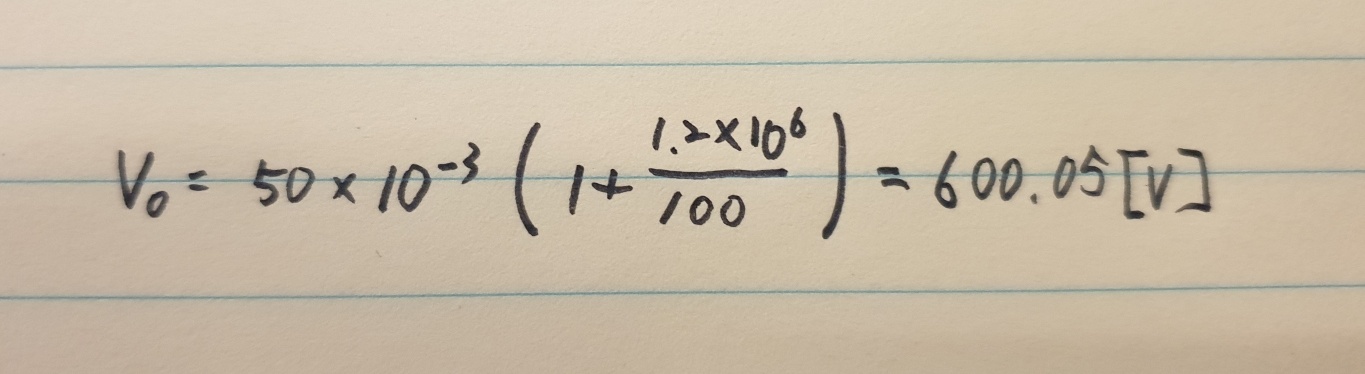 V₀ = 50 × 10⁻³ ( 1 + \frac{1.2 × 10⁶}{100} ) = 600.05 [V]